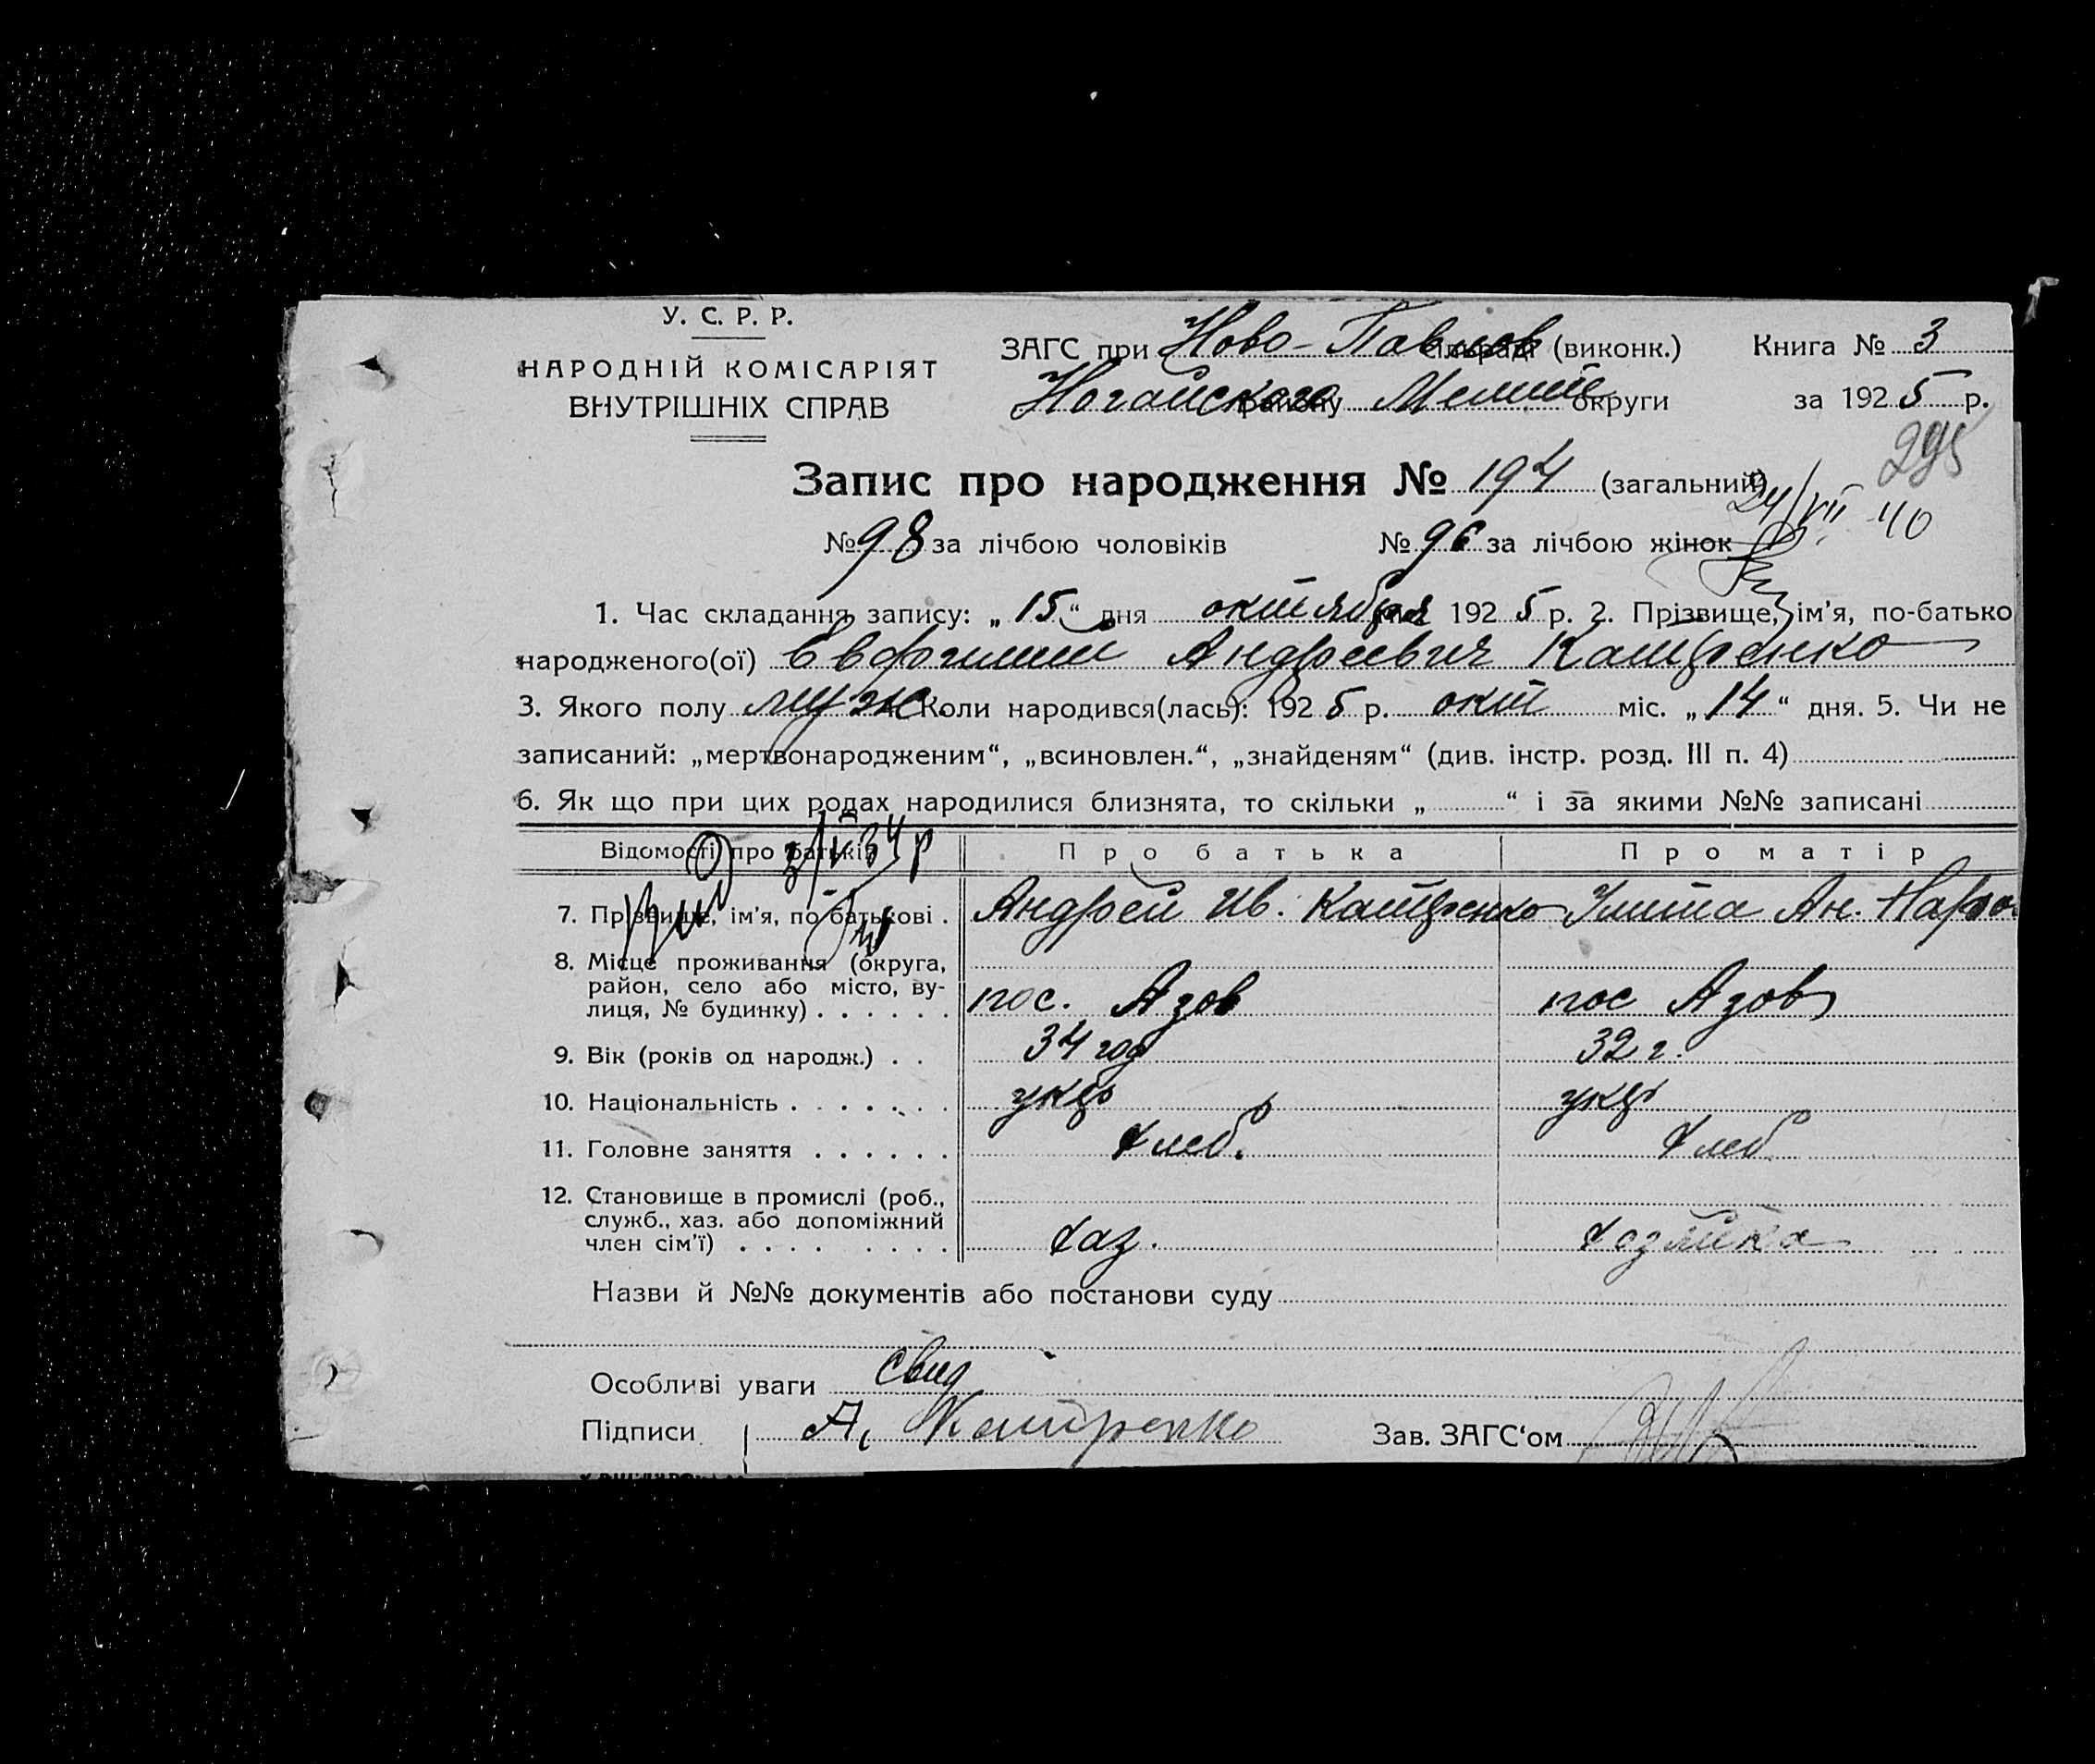 У. С. Р. Р.
НАРОДНІЙ КОМІСАРІЯТ
ВНУТРІШНІХ СПРАВ
ЗАГС при Ново-Павлов сільраді (виконк.)
Ногайского району Мелит округи
Книга № 3
за 1925 р.
295
Запис про народження № 194 (загальний)
24/VII 40
№ 98 за лічбою чоловіків № 96 за лічбою жінок
1. Час складання запису: „15“ дня октября 1925 р. 2. Прізвище, ім’я, по-батько
народженого(ої) Евфимий Андреевич Катренко
3. Якого полу муж. Коли народився(лась): 1925 р. окт міс. „14“ дня. 5. Чи не
записаний: „мертвонародженим“, „всиновлен.“, „знайденям“ (див. інстр. розд. III п. 4)
6. Як що при цих родах народилися близнята, то скільки „ “ і за якими №№ записані
Відомості про батьків Про батька Про матір
7. Прізвище, ім’я, по батькові . Андрей Ив. Катренко Улита Ан.
8. Місце проживання (округа,
район, село або місто, ву-
лиця, № будинку) . . . . . . пос. Азов пос Азов
9. Вік (років од народж.) . . 34 год 32 г.
10. Національність . . . . . . . укр укр
11. Головне заняття . . . . . . хлеб. хлеб.
12. Становище в промислі (роб.,
служб., хаз. або допоміжний
член сім’ї) . . . . . . . . хаз. хозяйка
Назви й №№ документів або постанови суду
Особливі уваги свид
Підписи А. Катренко Зав. ЗАГС‘ом